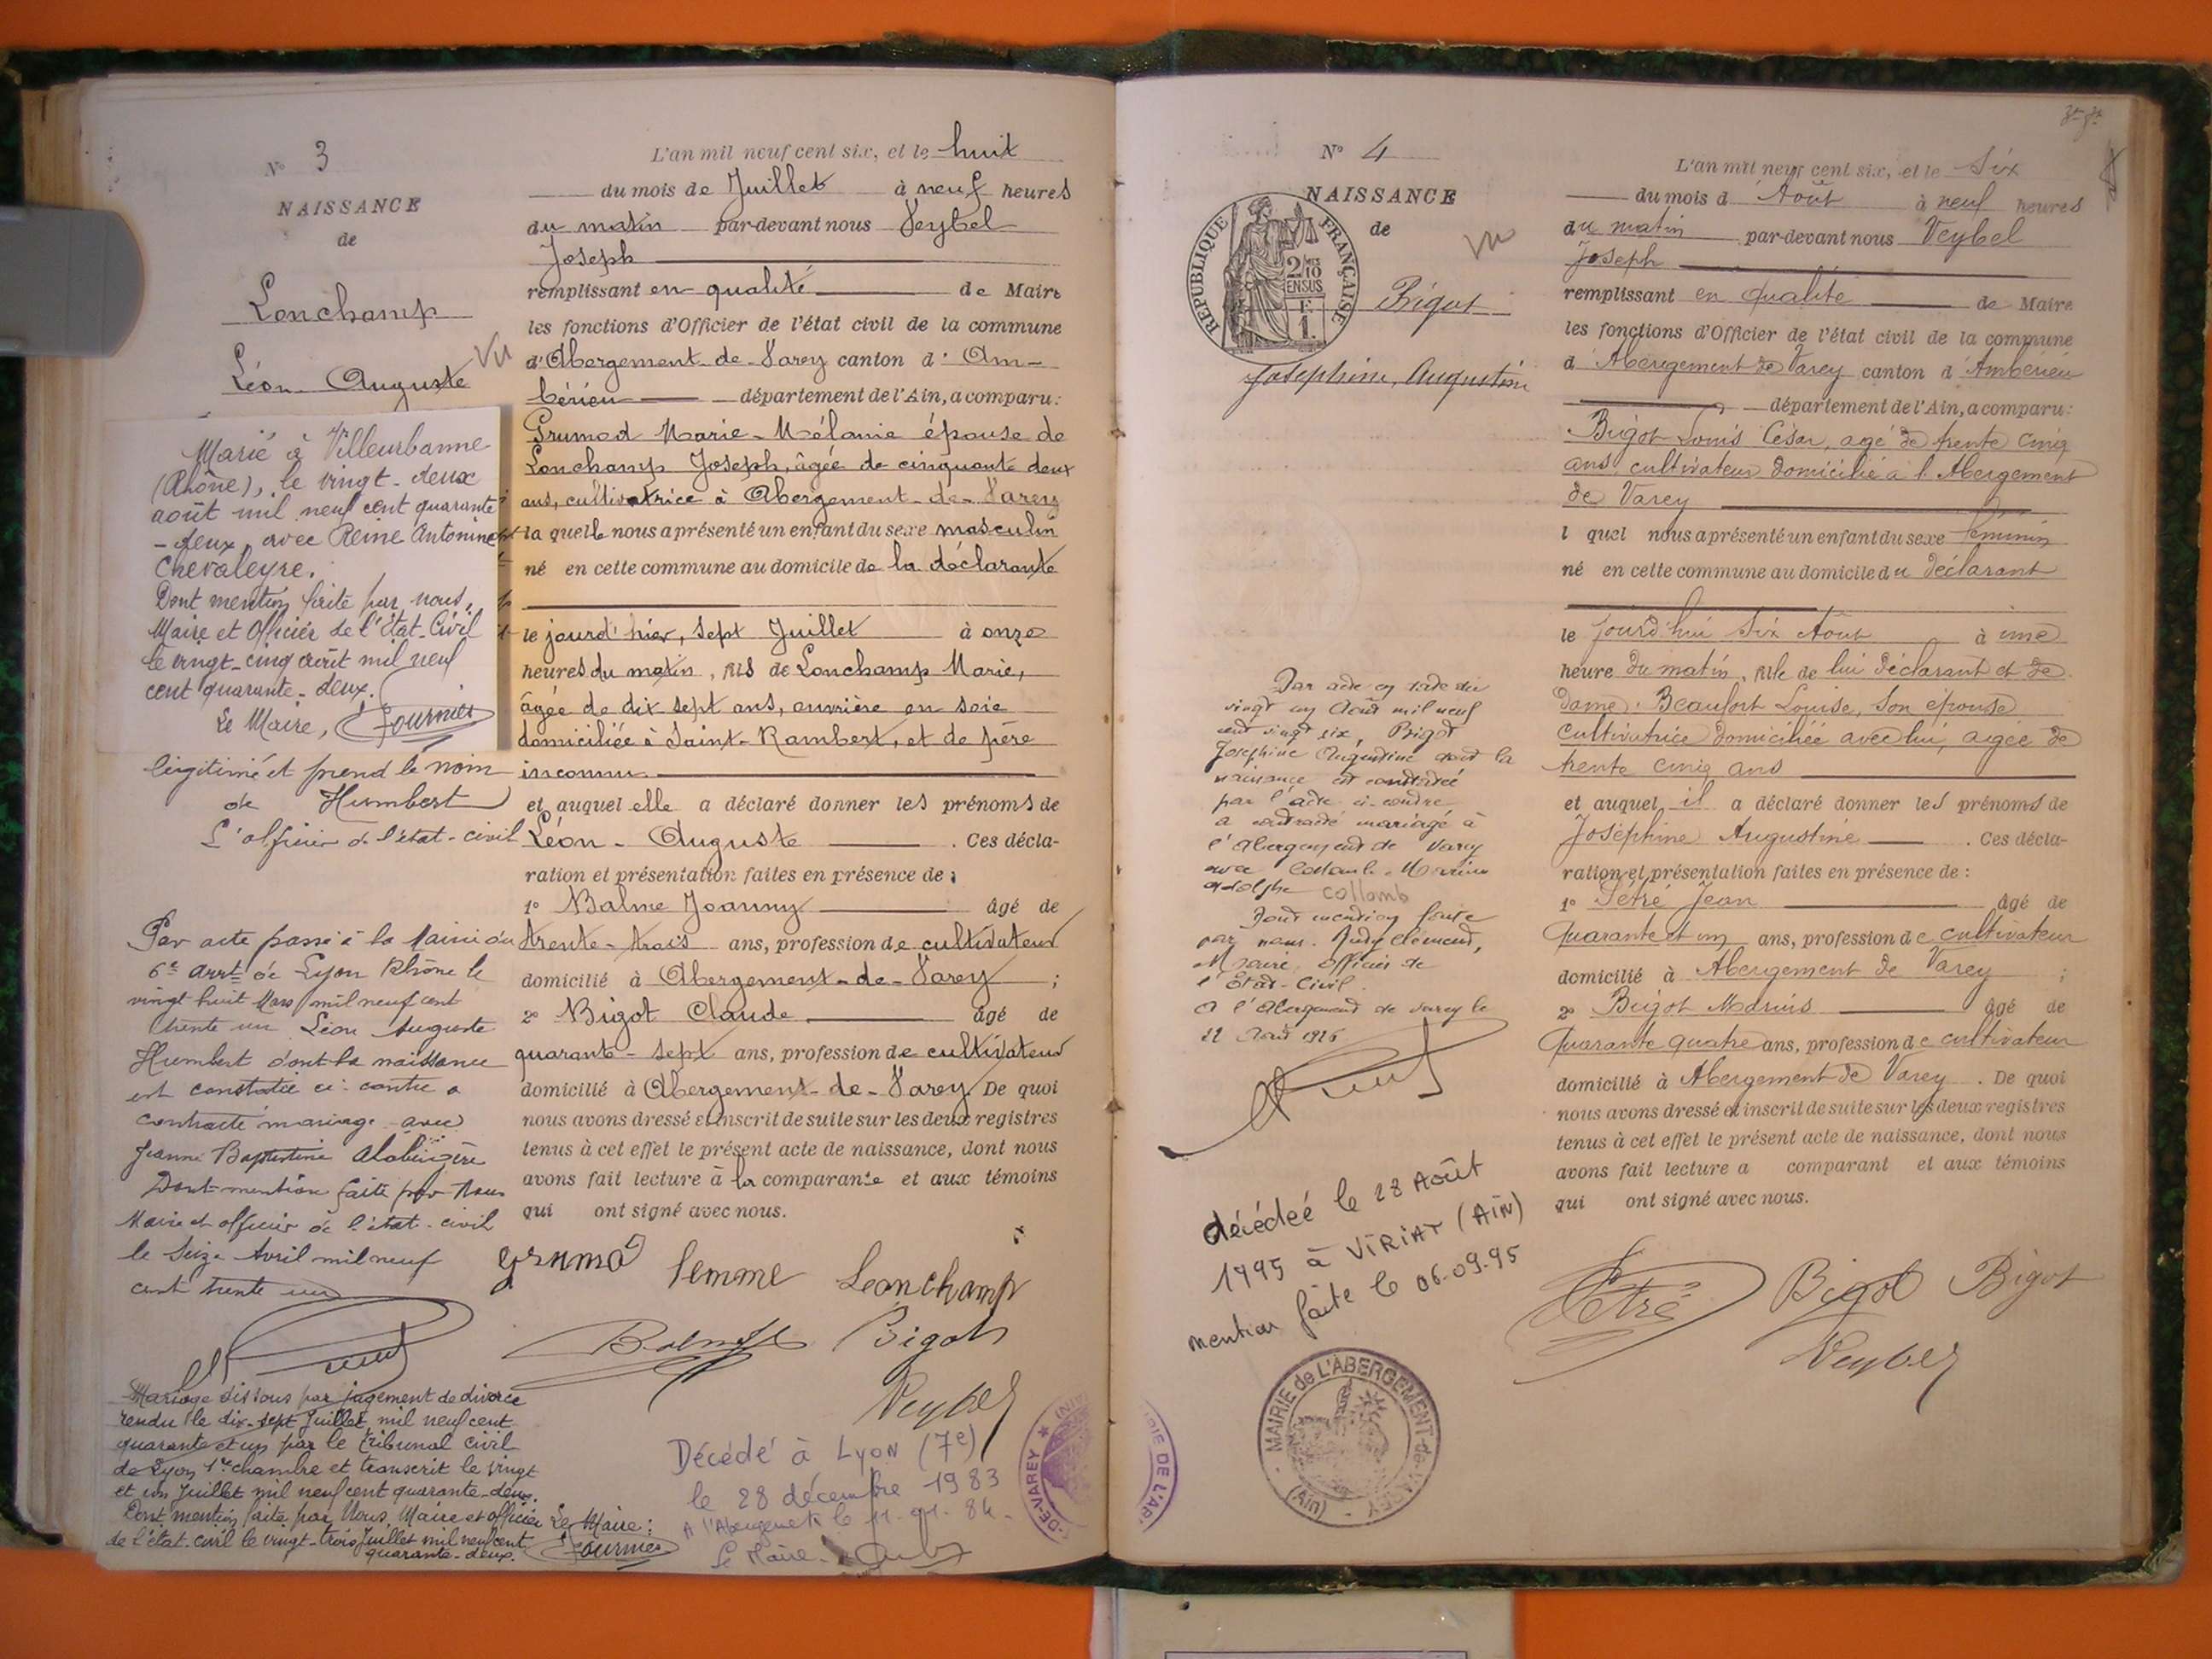 N° 3
NAISSANCE
de
Lonchamp
Léon Auguste
Vu
Marié à Villeurbanne
(Rhône), le vingt-deux
août mil neuf cent quarante
-deux, avec Reine Antonine
Chevaleyre.
Dont mention faite par nous,
Maire et Officier de l'État-Civil
le vingt-cinq août mil neuf
cent quarante-deux.
Le Maire, Fournier
légitimé et prend le nom
de Humbert
L'officier de l'état-civil
Par acte passé à la Mairie du
6e arrt de Lyon Rhône le
vingt huit Mars mil neuf cent
trente un Léon Auguste
Humbert dont la naissance
est constatée ci-contre a
contracté mariage avec
Jeanne Baptistine
Dont mention faite par Nous
Maire et officier de l'état-civil
le Seize Avril mil neuf
cent trente un
Mariage dissous par jugement de divorce
rendu le dix-sept Juillet mil neuf cent
quarante et un par le tribunal civil
de Lyon 1re chambre et transcrit le vingt
et un Juillet mil neuf cent quarante-deux.
Dont mention faite par Nous, Maire et officier
de l'état-civil le vingt-trois Juillet mil neuf cent
quarante-deux.
Le Maire:
Fournier
L'an mil neuf cent six, et le huit
du mois de Juillet à neuf heures
du matin par-devant nous Veybel
Joseph
remplissant en qualité de Maire
les fonctions d'Officier de l'état civil de la commune
d'Abergement-de-Varey canton d'Am-
bérieu département de l'Ain, a comparu:
Grumod Marie-Mélanie épouse de
Lonchamp Joseph, âgée de cinquante deux
ans, cultivatrice à Abergement-de-Varey
la quelle nous a présenté un enfant du sexe masculin
né en cette commune au domicile de la déclarante
le jourd'hier, sept Juillet à onze
heures du matin, fils de Lonchamp Marie,
âgée de dix sept ans, ouvrière en soie
domiciliée à Saint-Rambert, et de père
inconnu
et auquel elle a déclaré donner les prénoms de
Léon-Auguste . Ces décla-
ration et présentation faites en présence de :
1° Balme Joanny âgé de
trente-trois ans, profession de cultivateur
domicilié à Abergement-de-Varey ;
2° Bigot Claude âgé de
quarante-sept ans, profession de cultivateur
domicilié à Abergement-de-Varey. De quoi
nous avons dressé et inscrit de suite sur les deux registres
tenus à cet effet le présent acte de naissance, dont nous
avons fait lecture à la comparante et aux témoins
qui ont signé avec nous.
femme Lonchamp
Bigot
Veybel
Décédé à Lyon (7e)
le 28 décembre 1983
A l'Abergement le 11-01-84-
Le Maire
DE-VAREY
N° 4
NAISSANCE
de
Vu
REPUBLIQUE FRANÇAISE
2/10
EN SUS
1F
Bigot
Joséphine, Augustine
Par acte en date du
vingt un Août mil neuf
cent vingt six, Bigot
Joséphine Augustine dont la
naissance est constatée
par l'acte ci-contre
a contracté mariage à
l'Abergement de Varey
avec
Adolphe Collomb
Dont mention faite
par nous.
Maire, Officier de
l'État-Civil
A l'Abergement de Varey le
22 Août 1926
décédée le 28 Août
1995 à VIRIAT (AIN)
mention faite le 06-09-95
MAIRIE de L'ABERGEMENT-de-VAREY
(Ain)
MAIRIE DE L'AB
L'an mil neuf cent six, et le Six
du mois d'Août à neuf heures
du matin par-devant nous Veybel
Joseph
remplissant en qualité de Maire
les fonctions d'Officier de l'état civil de la commune
d'Abergement de Varey canton d'Ambérieu
département de l'Ain, a comparu:
Bigot Louis César, agé de trente cinq
ans cultivateur domicilié à l'Abergement
de Varey
l quel nous a présenté un enfant du sexe féminin
né en cette commune au domicile du déclarant
le jourd'hui Six Août à une
heure du matin, fille de lui déclarant et de
dame Beaufort Louise, son épouse
cultivatrice domiciliée avec lui, agée de
trente cinq ans
et auquel il a déclaré donner les prénoms de
Joséphine Augustine . Ces décla-
ration et présentation faites en présence de :
1° Tétré Jean âgé de
Quarante et un ans, profession de cultivateur
domicilié à Abergement de Varey ;
2° Bigot Marius âgé de
Quarante quatre ans, profession de cultivateur
domicilié à Abergement de Varey . De quoi
nous avons dressé et inscrit de suite sur les deux registres
tenus à cet effet le présent acte de naissance, dont nous
avons fait lecture a comparant et aux témoins
qui ont signé avec nous.
Tétré Bigot Bigot
Veybel